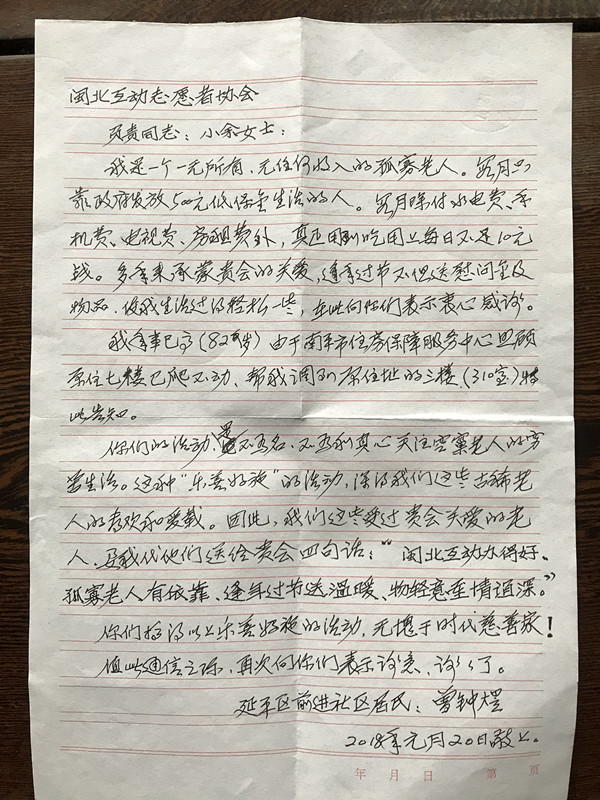 闽北互动志愿者协会
负责同志：小余女士：
我是一个一无所有、无任何收入的孤寡老人。每月只
靠政府发放500元低保金生活的人。每月除付水电费、手
机费、电视费、房租费外，真正用到吃用上每日又不足10元
钱。多年来承蒙贵会的关爱，逢年过节不但送慰问金及
物品、使我生活过得轻松一些，在此向你们表示衷心感谢。
我年事已高（82岁）由于南平市住房保障服务中心照顾
原住七楼已爬不动、帮我调到原住址的三楼（310室）特
此告知。
你们的活动、是不为名、不为利真心关注空寡老人的穷
苦生活。这种“乐善好施”的活动，深得我们这些古稀老
人的喜欢和爱戴。因此，我们这些受过贵会关爱的老
人、要我代他们送给贵会四句话：“闽北互动办得好、
孤寡老人有依靠、逢年过节送温暖、物轻意重情谊深。”
你们搞得以上乐善好施的活动，无愧于时代慈善家！
值此通信之际，再次向你们表示谢意、谢谢了。
延平区前进社区居民：曾钟煋
2018年元月20日敬上。
年 月 日 第 页